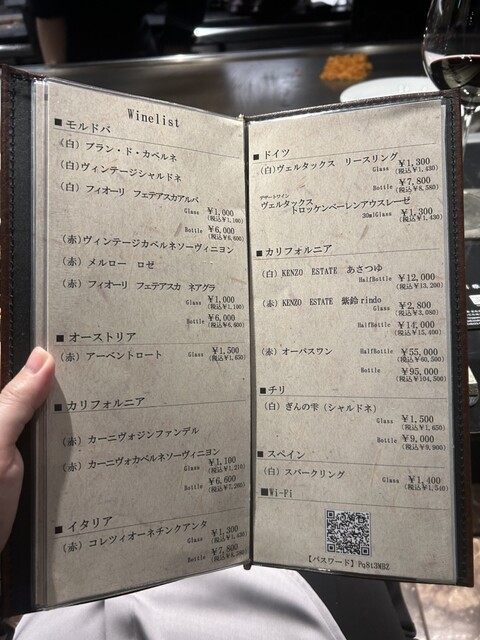 Winelist
■モルドバ
(白) ブラン・ド・カベルネ
(白) ヴィンテージシャルドネ
(白) フィオーリ フェテアスカアルバ
Glass ¥1,000
(税込¥1,100)
Bottle ¥6,000
(税込¥6,600)
(赤) ヴィンテージカベルネソーヴィニヨン
(赤) メルロー ロゼ
(赤) フィオーリ フェテアスカ ネアグラ
Glass ¥1,000
(税込¥1,100)
Bottle ¥6,000
(税込¥6,600)
■オーストリア
(赤) アーベントロート Glass ¥1,500
(税込¥1,650)
■カリフォルニア
(赤) カーニヴォジンファンデル
(赤) カーニヴォカベルネソーヴィニヨン
Glass ¥1,100
(税込¥1,210)
Bottle ¥6,600
(税込¥7,260)
■イタリア
(赤) コレツィオーネチンクアンタ
Glass ¥1,300
(税込¥1,430)
Bottle ¥7,800
(税込¥8,580)
■ドイツ
(白) ヴェルタックス リースリング
Glass ¥1,300
(税込¥1,430)
Bottle ¥7,800
(税込¥8,580)
デザートワイン
ヴェルタックス
トロッケンベーレンアウスレーゼ
30mlGlass ¥1,300
(税込¥1,430)
■カリフォルニア
(白) KENZO ESTATE あさつゆ
HalfBottle ¥12,000
(税込¥13,200)
(赤) KENZO ESTATE 紫鈴rindo
Glass ¥2,800
(税込¥3,080)
HalfBottle ¥14,000
(税込¥15,400)
(赤) オーパスワン HalfBottle ¥55,000
(税込¥60,500)
Bottle ¥95,000
(税込¥104,500)
■チリ
(白) ぎんの雫 (シャルドネ)
Glass ¥1,500
(税込¥1,650)
Bottle ¥9,000
(税込¥9,900)
■スペイン
(白) スパークリング
Glass ¥1,400
(税込¥1,540)
■Wi-Fi
【パスワード】Pq8t3MBZ